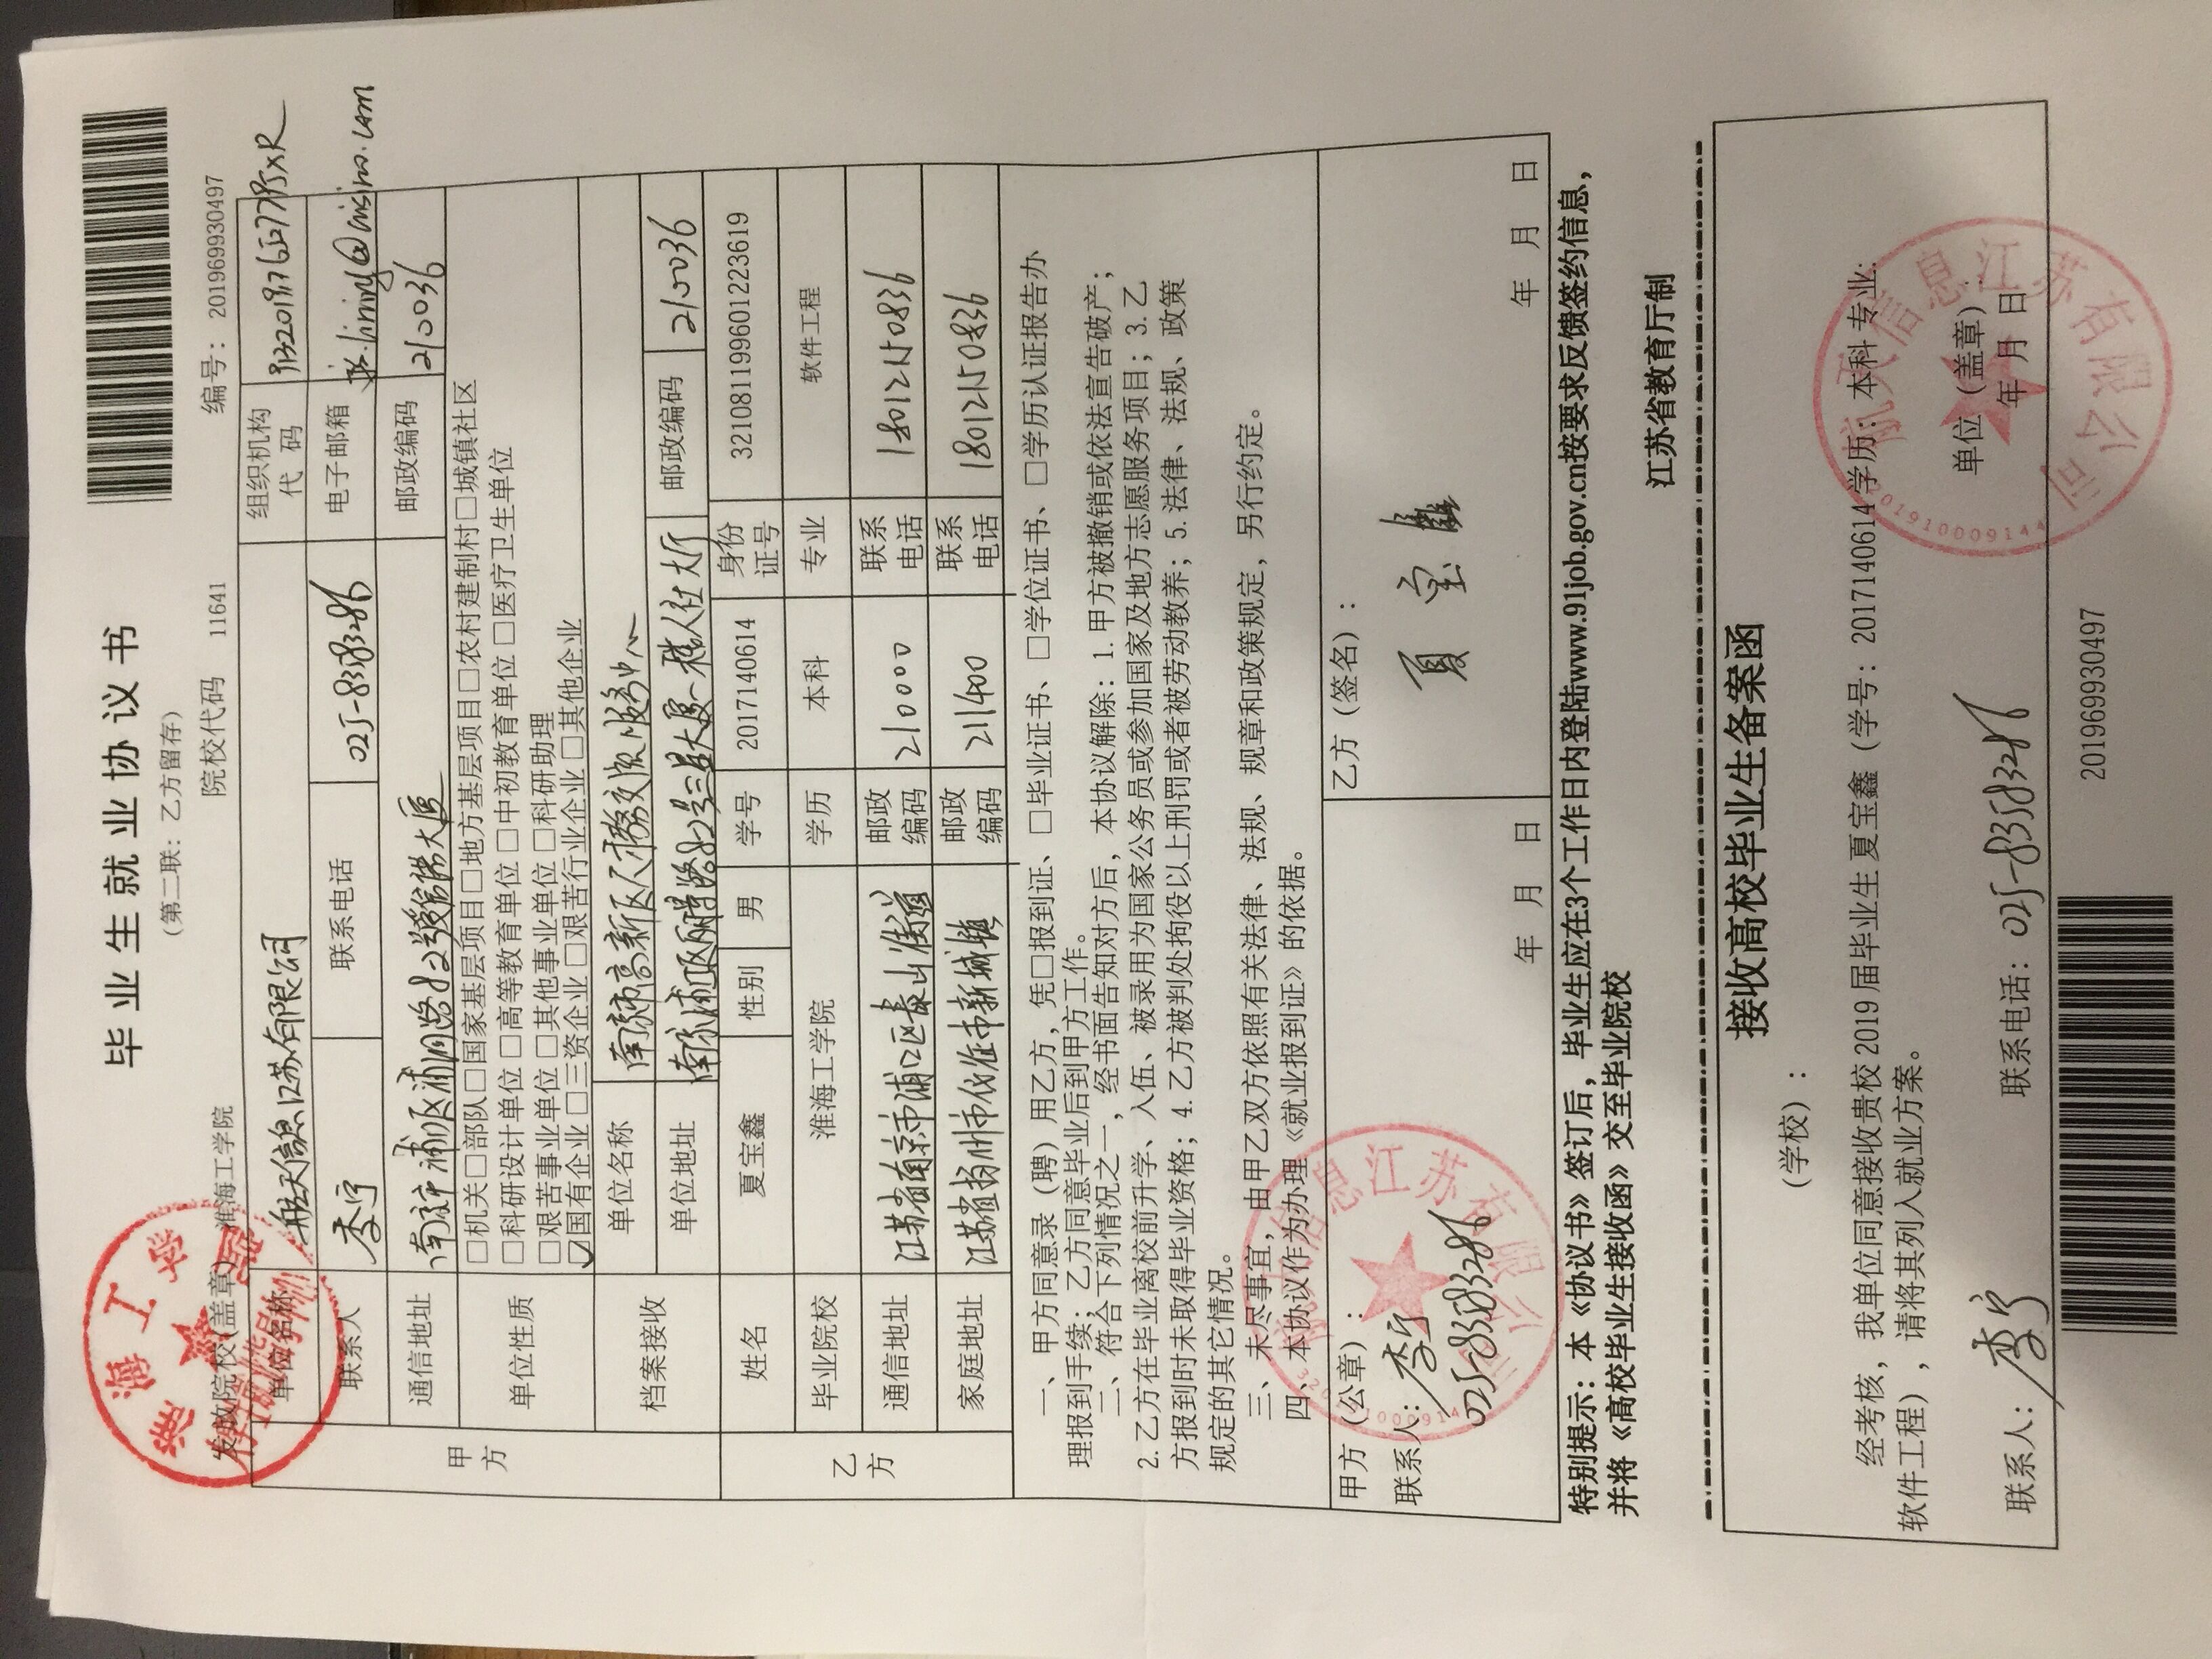 毕业生就业协议书
(第二联：乙方留存)
发放院校(盖章) 淮海工学院 院校代码 11641 编号：201969930497
甲方
单位名称 航天信息江苏有限公司 组织机构代码
联系人 李宁 联系电话 025-83583286 电子邮箱
通信地址 邮政编码 210036
单位性质
□机关□部队□国家基层项目□地方基层项目□农村建制村□城镇社区
□科研设计单位□高等教育单位□中初教育单位□医疗卫生单位
□艰苦事业单位□其他事业单位□科研助理
☑国有企业□三资企业□艰苦行业企业□其他企业
档案接收
单位名称 南京市高新区人才服务交流服务中心
单位地址 邮政编码 210036
乙方
姓名 夏宝鑫 性别 男 学号 2017140614 身份证号 321081199601223619
毕业院校 淮海工学院 学历 本科 专业 软件工程
通信地址 江苏省南京市浦口区泰山街道 邮政编码 210000 联系电话 18012150836
家庭地址 江苏省扬州市仪征市新城镇 邮政编码 211400 联系电话 18012150836
一、甲方同意录（聘）用乙方，凭□报到证、□毕业证书、□学位证书、□学历认证报告办
理报到手续；乙方同意毕业后到甲方工作。
二、符合下列情况之一，经书面告知对方后，本协议解除：1.甲方被撤销或依法宣告破产；
2.乙方在毕业离校前升学、入伍、被录用为国家公务员或参加国家及地方志愿服务项目；3.乙
方报到时未取得毕业资格；4.乙方被判处拘役以上刑罚或者被劳动教养；5.法律、法规、政策
规定的其它情况。
三、未尽事宜，由甲乙双方依照有关法律、法规、规章和政策规定，另行约定。
四、本协议作为办理《就业报到证》的依据。
甲方（公章）： 乙方（签名）：
联系人：李宁 夏宝鑫
025-83583286
年 月 日 年 月 日
特别提示：本《协议书》签订后，毕业生应在3个工作日内登陆www.91job.gov.cn按要求反馈签约信息，
并将《高校毕业生接收函》交至毕业院校
江苏省教育厅制
接收高校毕业生备案函
（学校）：
经考核，我单位同意接收贵校2019届毕业生夏宝鑫（学号：2017140614学历：本科专业：
软件工程），请将其列入就业方案。
单位（盖章）：
年 月 日
联系人：李宁 联系电话：025-83583286
201969930497